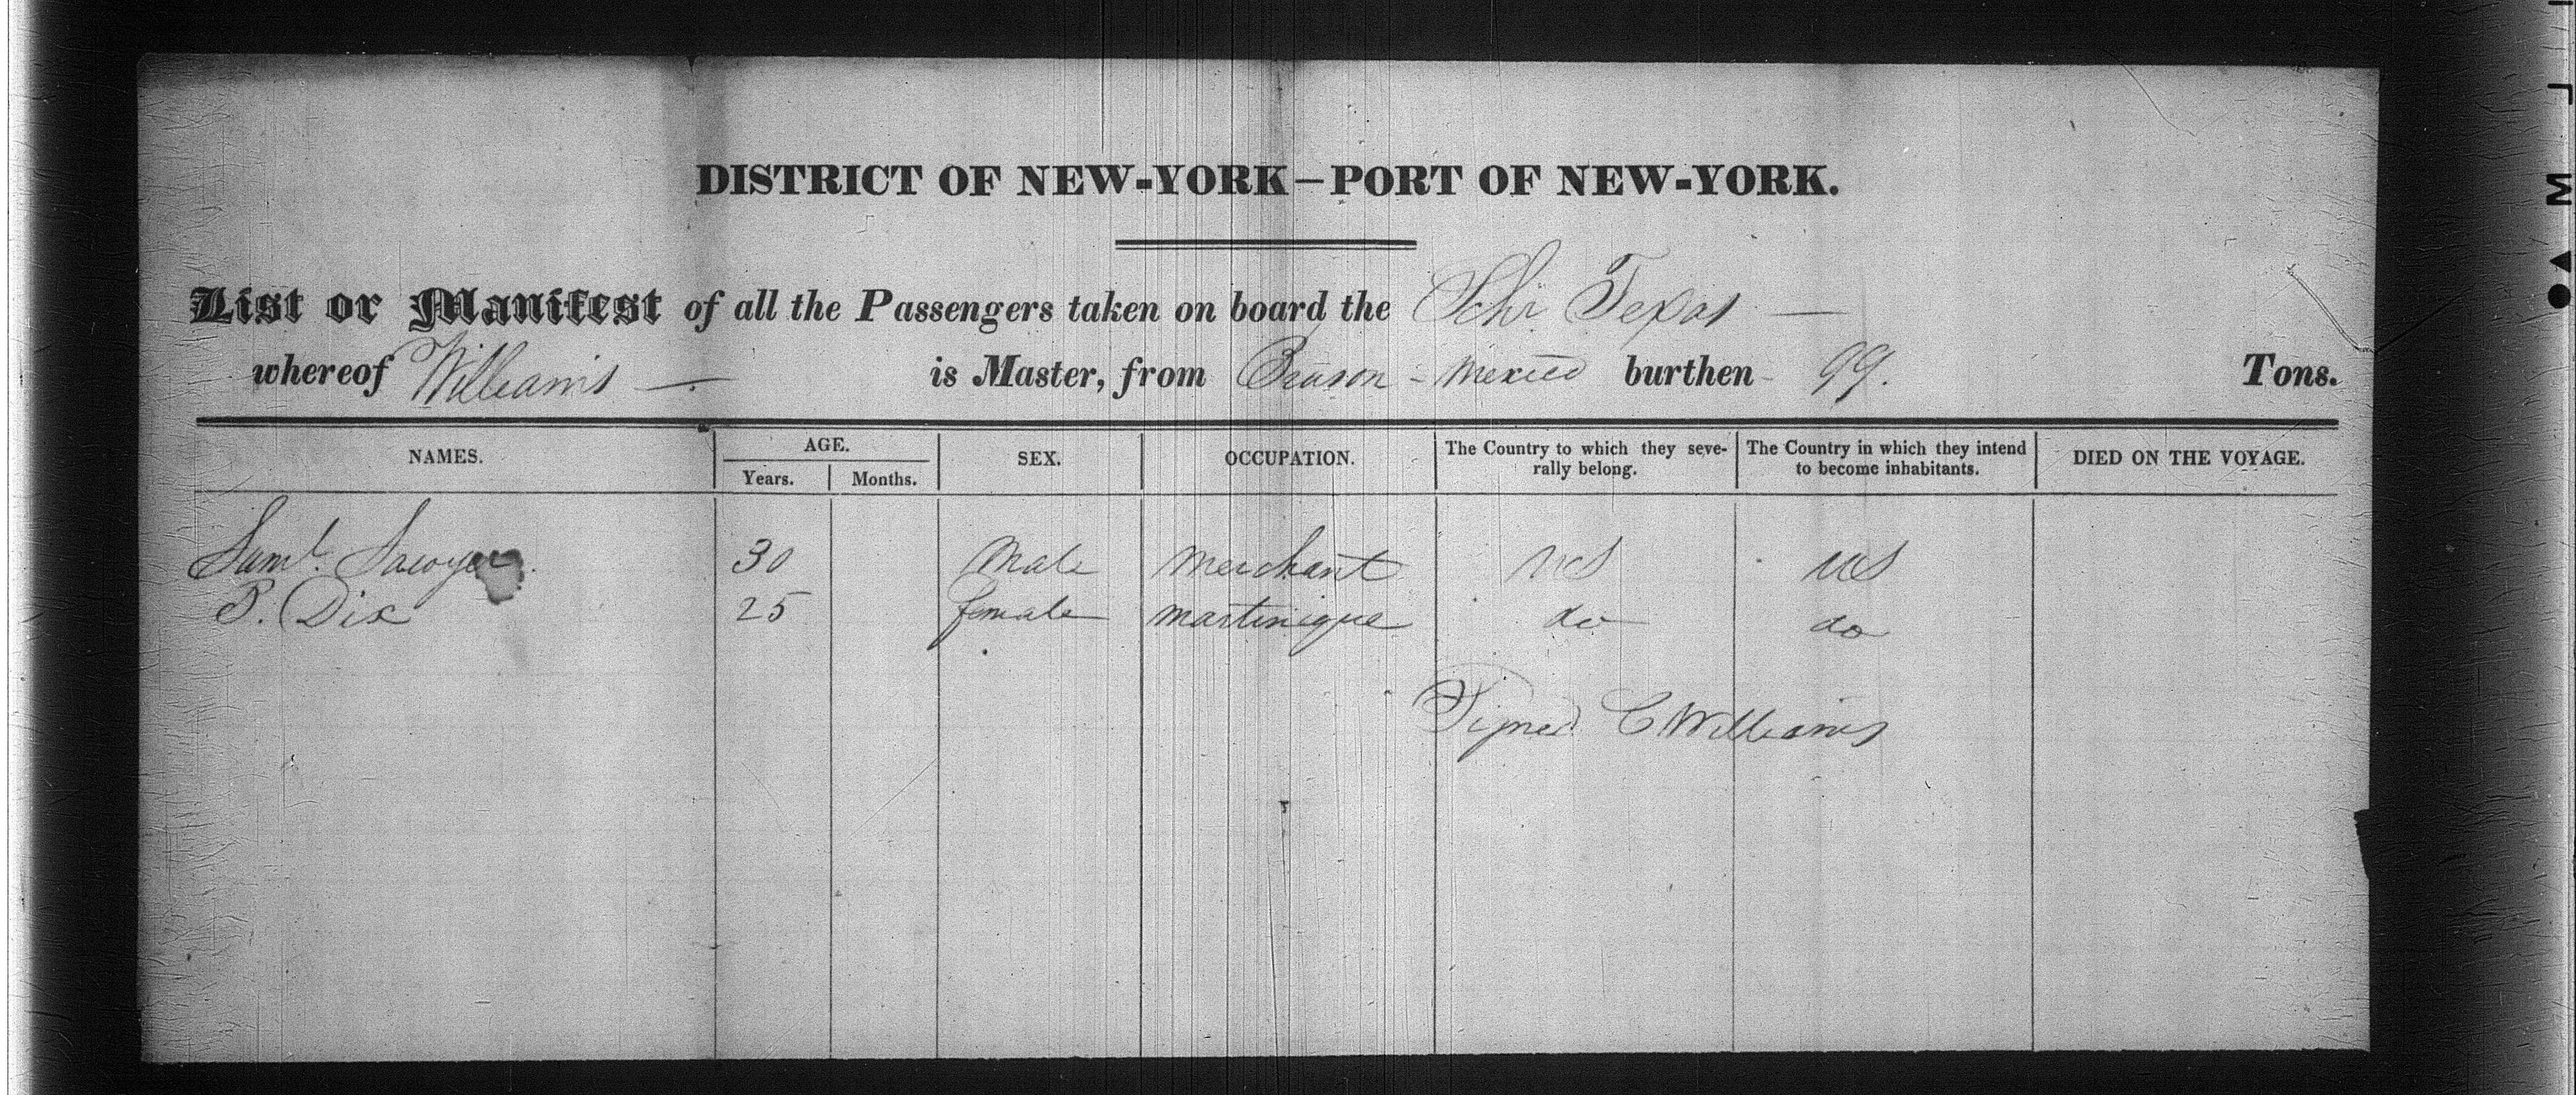 DISTRICT OF NEW-YORK—PORT OF NEW-YORK.
List or Manifest of all the Passengers taken on board the Schr Texas —
whereof Williams — is Master, from Mexico burthen 99. Tons.
NAMES. AGE. SEX. OCCUPATION. The Country to which they seve- The Country in which they intend DIED ON THE VOYAGE.
Years. Months. rally belong. to become inhabitants.
Saml. Sawyer 30 Male Merchant US US
P. Dix 25 female martinique do do
Signed C Williams